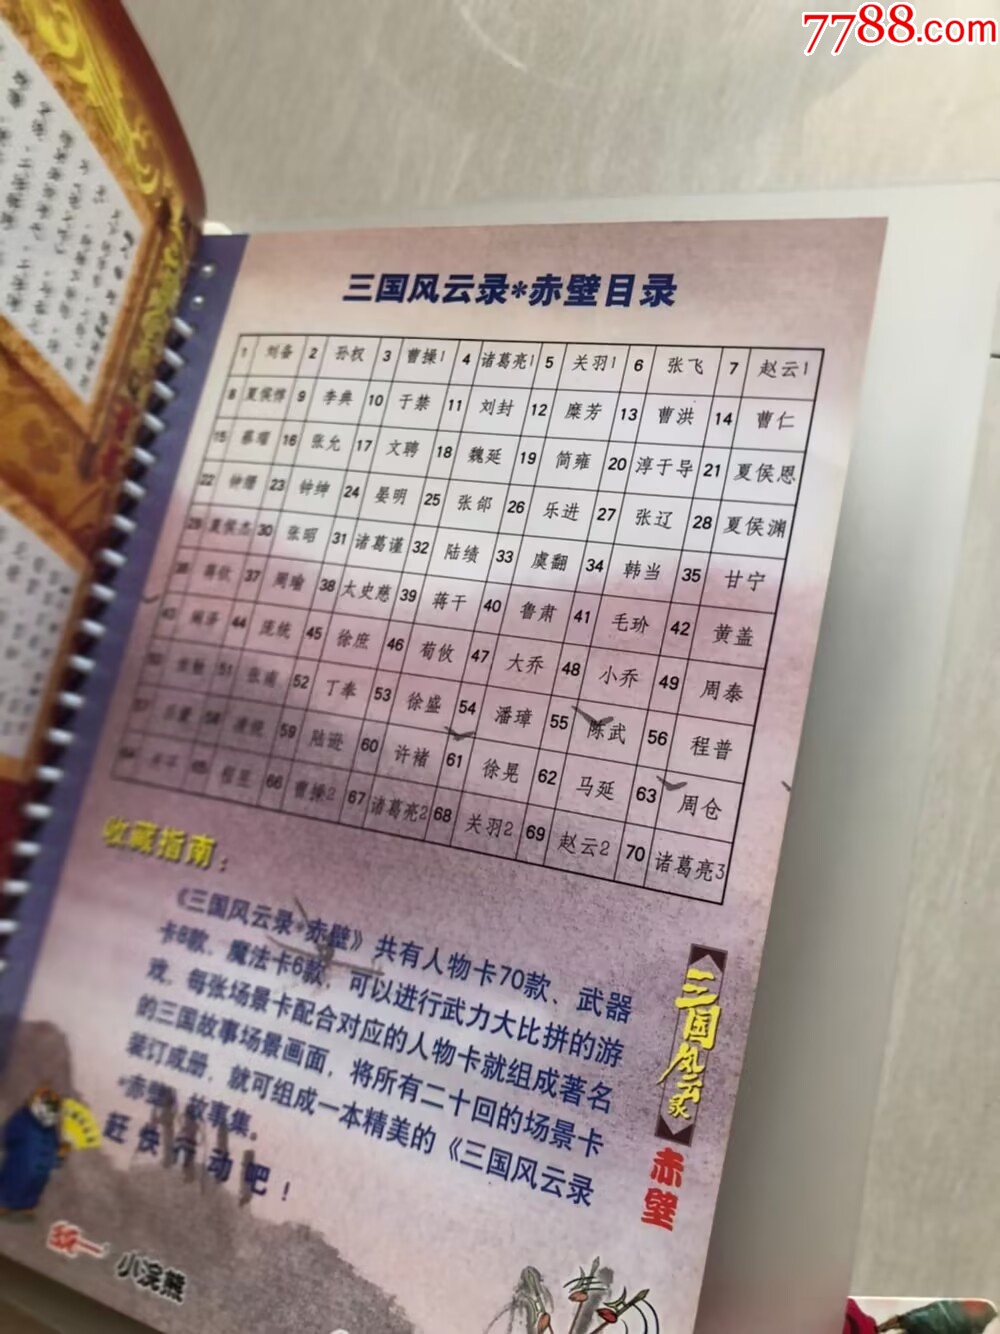 7788.com
三国风云录*赤壁目录
1 刘备 2 孙权 3 曹操1 4 诸葛亮1 5 关羽1 6 张飞 7 赵云1
8 夏侯惇 9 李典 10 于禁 11 刘封 12 糜芳 13 曹洪 14 曹仁
15 蔡瑁 16 张允 17 文聘 18 魏延 19 简雍 20 淳于导 21 夏侯恩
22 钟缙 23 钟绅 24 晏明 25 张郃 26 乐进 27 张辽 28 夏侯渊
29 夏侯杰 30 张昭 31 诸葛谨 32 陆绩 33 虞翻 34 韩当 35 甘宁
36 蒋钦 37 周瑜 38 太史慈 39 蒋干 40 鲁肃 41 毛玠 42 黄盖
43 阚泽 44 庞统 45 徐庶 46 荀攸 47 大乔 48 小乔 49 周泰
50 51 张南 52 丁奉 53 徐盛 54 潘璋 55 陈武 56 程普
57 吕蒙 58 凌统 59 陆逊 60 许褚 61 徐晃 62 马延 63 周仓
64 关平 65 程昱 66 曹操2 67 诸葛亮2 68 关羽2 69 赵云2 70 诸葛亮3
收藏指南：
《三国风云录*赤壁》共有人物卡70款、武器
卡8款、魔法卡6款，可以进行武力大比拼的游
戏，每张场景卡配合对应的人物卡就组成著名
的三国故事场景画面，将所有二十回的场景卡
装订成册，就可组成一本精美的《三国风云录
*赤壁》故事集。
赶快行动吧！
三国风云录
赤壁
统一 小浣熊